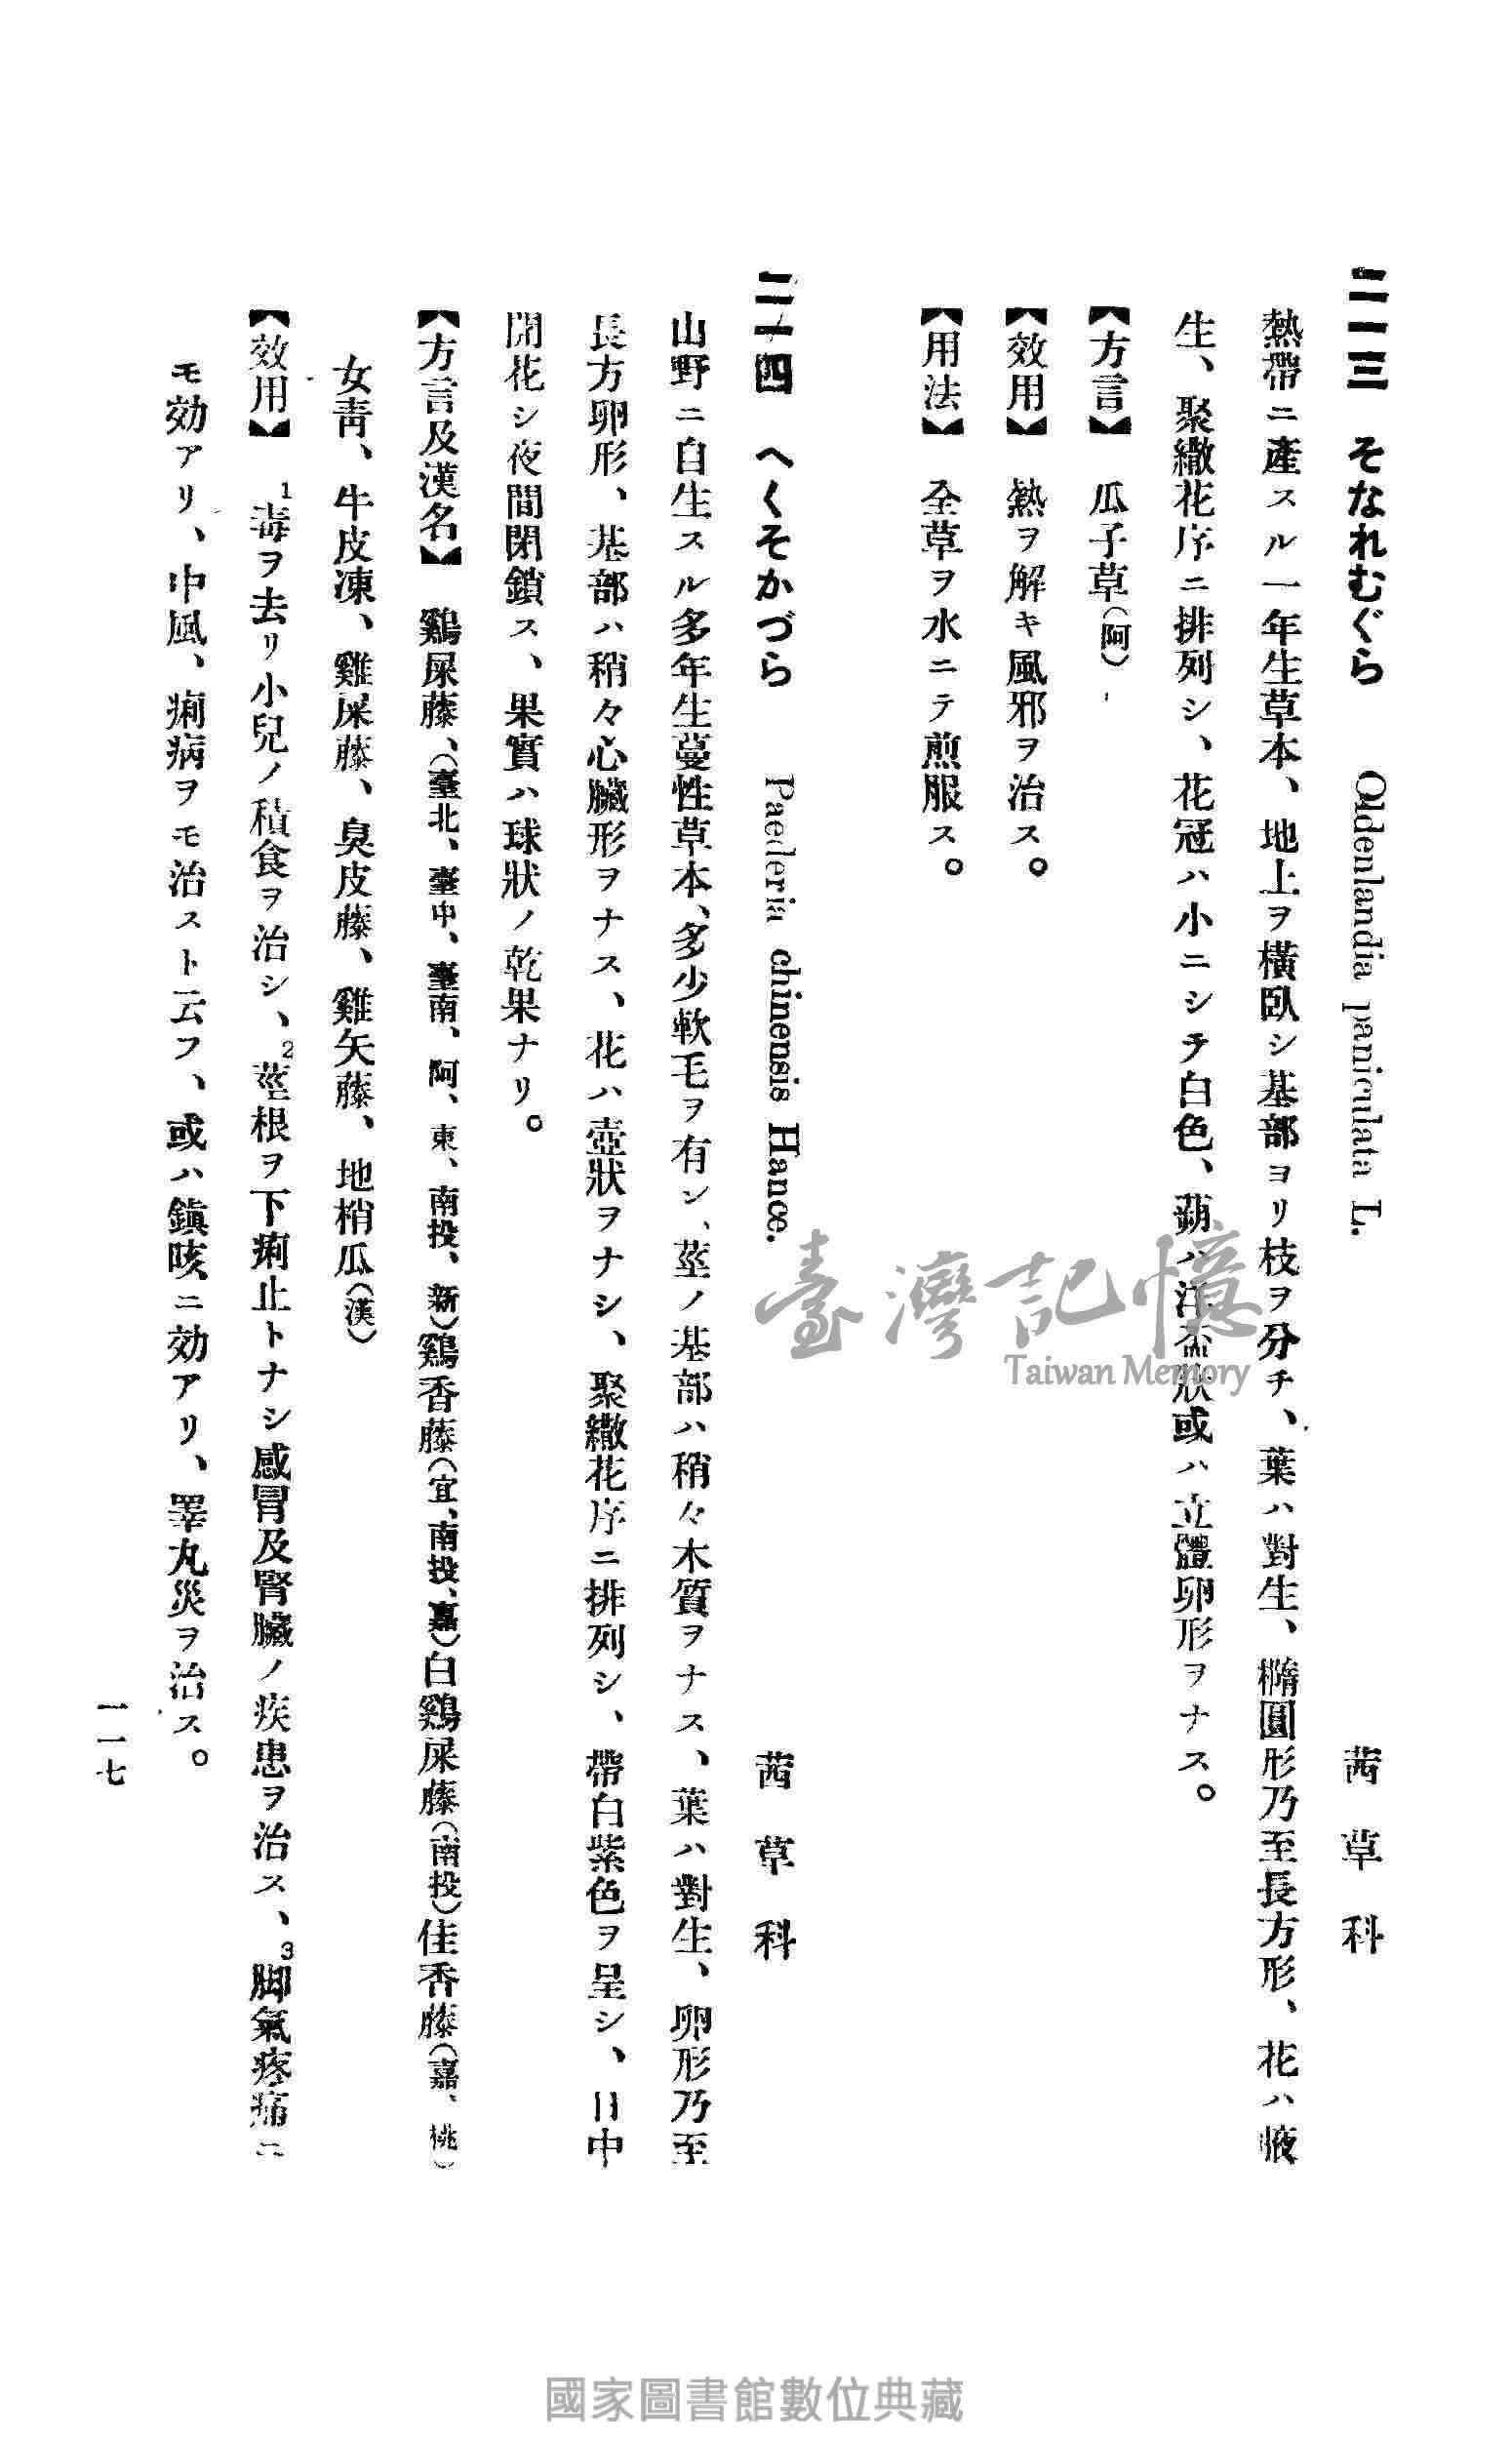 二一三　そなれむぐら　Oldenlandia paniculata L.　茜草科
熱帶ニ產スル一年生草本、地上ヲ橫臥シ基部ヨリ枝ヲ分チ、葉ハ對生、橢圓形乃至長方形、花ハ腋
生、聚繖花序ニ排列シ、花冠ハ小ニシテ白色、蒴ハ洋盃狀或ハ立體卵形ヲナス。
【方言】　瓜子草(阿)
【效用】　熱ヲ解キ風邪ヲ治ス。
【用法】　全草ヲ水ニテ煎服ス。
二一四　へくそかづら　Paederia chinensis Hance.　茜草科
山野ニ自生スル多年生蔓性草本、多少軟毛ヲ有シ、莖ノ基部ハ稍々木質ヲナス、葉ハ對生、卵形乃至
長方卵形、基部ハ稍々心臟形ヲナス、花ハ壺狀ヲナシ、聚繖花序ニ排列シ、帶白紫色ヲ呈シ、日中
開花シ夜間閉鎖ス、果實ハ球狀ノ乾果ナリ。
【方言及漢名】　鷄屎藤、(臺北、臺中、臺南、阿、東、南投、新)鷄香藤(宜、南投、嘉)白鷄屎藤(南投)佳香藤(嘉、桃)
女靑、牛皮凍、雞屎藤、臭皮藤、雞矢藤、地梢瓜(漢)
【效用】　1毒ヲ去リ小兒ノ積食ヲ治シ、2莖根ヲ下痢止トナシ感冒及腎臟ノ疾患ヲ治ス、3脚氣疼痛ニ
モ効アリ、中風、痢病ヲモ治スト云フ、或ハ鎭咳ニ効アリ、睪丸災ヲ治ス。
一一七
臺灣記憶
Taiwan Memory
國家圖書館數位典藏